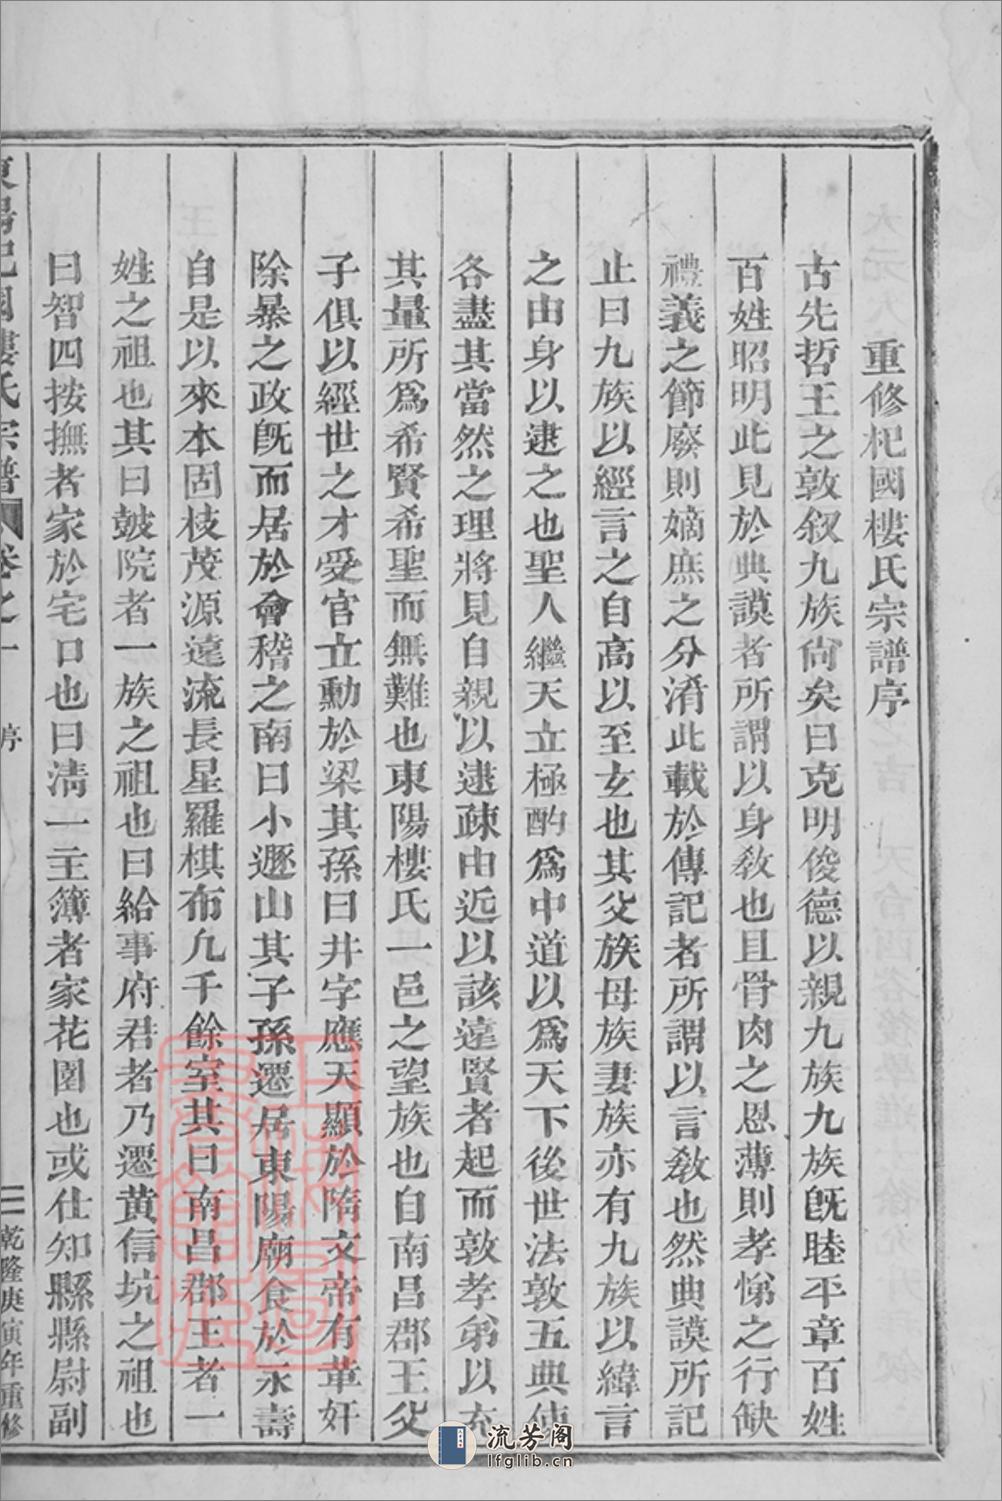 重修杞國樓氏宗譜序
古先哲王之敦叙九族尙矣曰克明俊德以親九族九族旣睦平章百姓
百姓昭明此見於典謨者所謂以身敎也且骨肉之恩薄則孝悌之行缺
禮義之節廢則嫡庶之分淆此載於傳記者所謂以言敎也然典謨所記
止曰九族以經言之自高以至玄也其父族母族妻族亦有九族以緯言
之由身以逮之也聖人繼天立極酌爲中道以爲天下後世法敦五典使
各盡其當然之理將見自親以逮疎由近以該遠賢者起而敦孝弟以充
其量所爲希賢希聖而無難也東陽樓氏一邑之望族也自南昌郡王父
子俱以經世之才受官立勳於梁其孫曰井字應天顯於隋文帝有革奸
除暴之政旣而居於會稽之南曰小遯山其子孫遷居東陽廟食於永壽
自是以來本固枝茂源遠流長星羅棋布凢千餘室其曰南昌郡王者一
姓之祖也其曰皷院者一族之祖也曰給事府君者乃遷黄信坑之祖也
曰智四按撫者家於宅口也曰淸一主簿者家花園也或仕知縣縣尉副
東陽杞國樓氏宗譜 卷之一 序 二 乾隆庚寅年重修
流芳阁
lfglib.cn